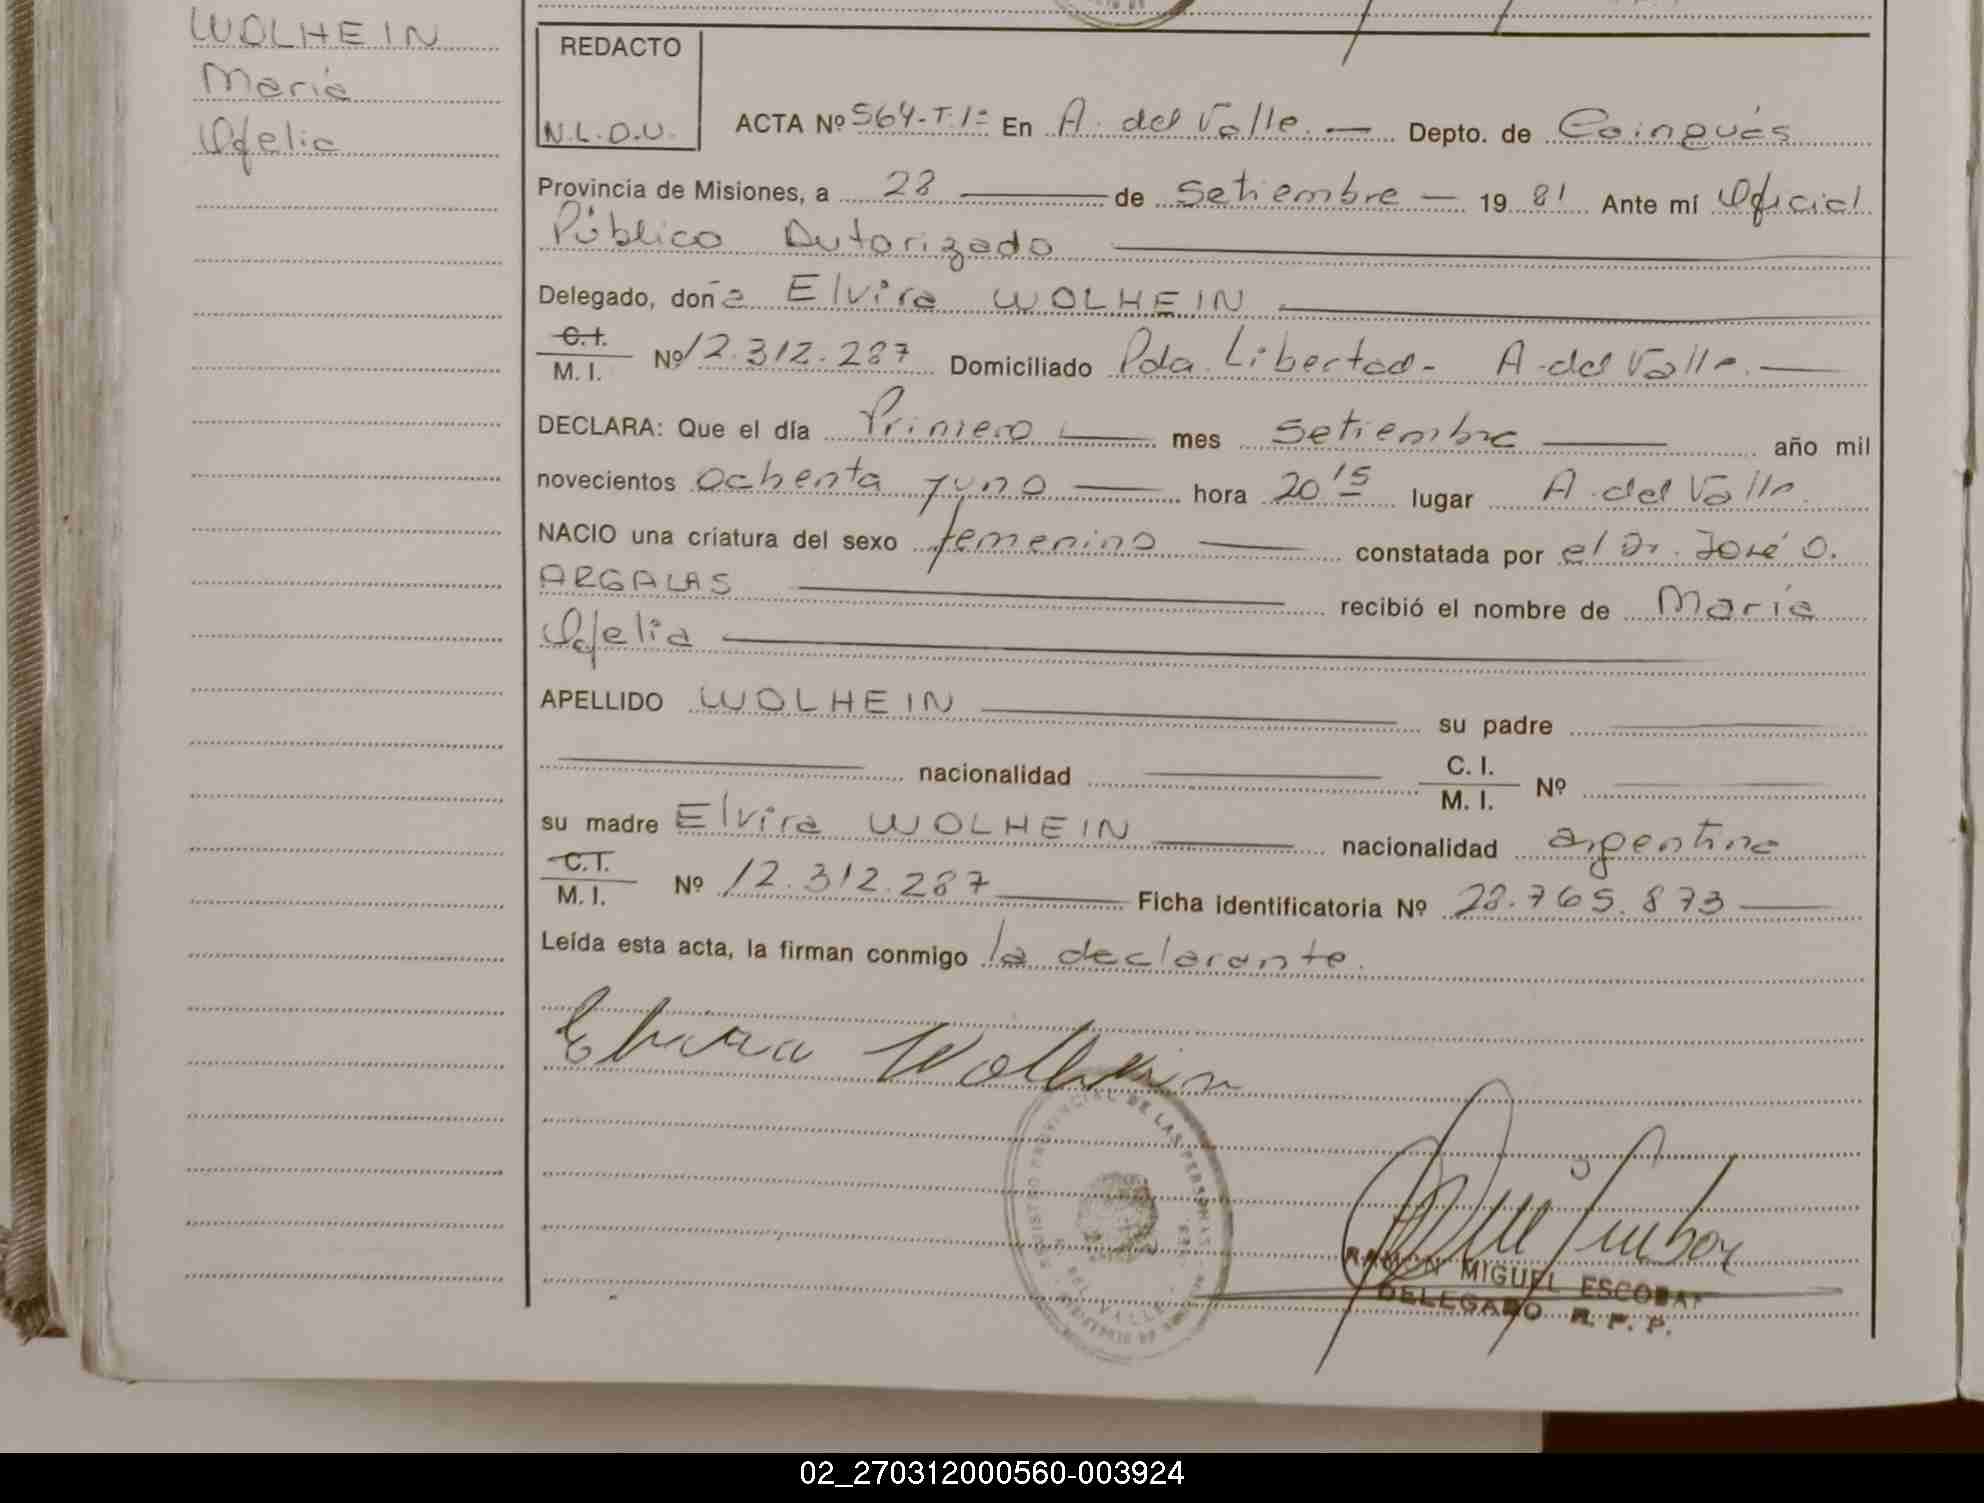 WOLHEIN
María
Ofelia
REDACTO
N.L.D.U.
ACTA Nº 564-T.1º En A. del Valle. — Depto. de Cainguás
Provincia de Misiones, a 28 — de Setiembre — 19 81 Ante mí Oficial
Público Autorizado
Delegado, doña Elvira WOLHEIN
C.I.
M. I. Nº 12.312.287 Domiciliado Pda. Libertad - A. del Valle. —
DECLARA: Que el día Primero — mes Setiembre — año mil
novecientos ochenta y uno — hora 20 15 lugar A. del Valle.
NACIO una críatura del sexo femenino — constatada por el Dr. José O.
ARGALAS — recibió el nombre de María
Ofelia
APELLIDO WOLHEIN — su padre —
— nacionalidad — C. I.
M. I. Nº —
su madre Elvira WOLHEIN — nacionalidad argentina
C.I.
M. I. Nº 12.312.287 — Ficha identificatoria Nº 28.765.873 —
Leída esta acta, la firman conmigo la declarante.
Elvira Wolhein
PROVINCIAL DE LAS PERSONAS
DEL VALLE
RAMON MIGUEL ESCOBAR
DELEGADO R. P. P.
02_270312000560-003924